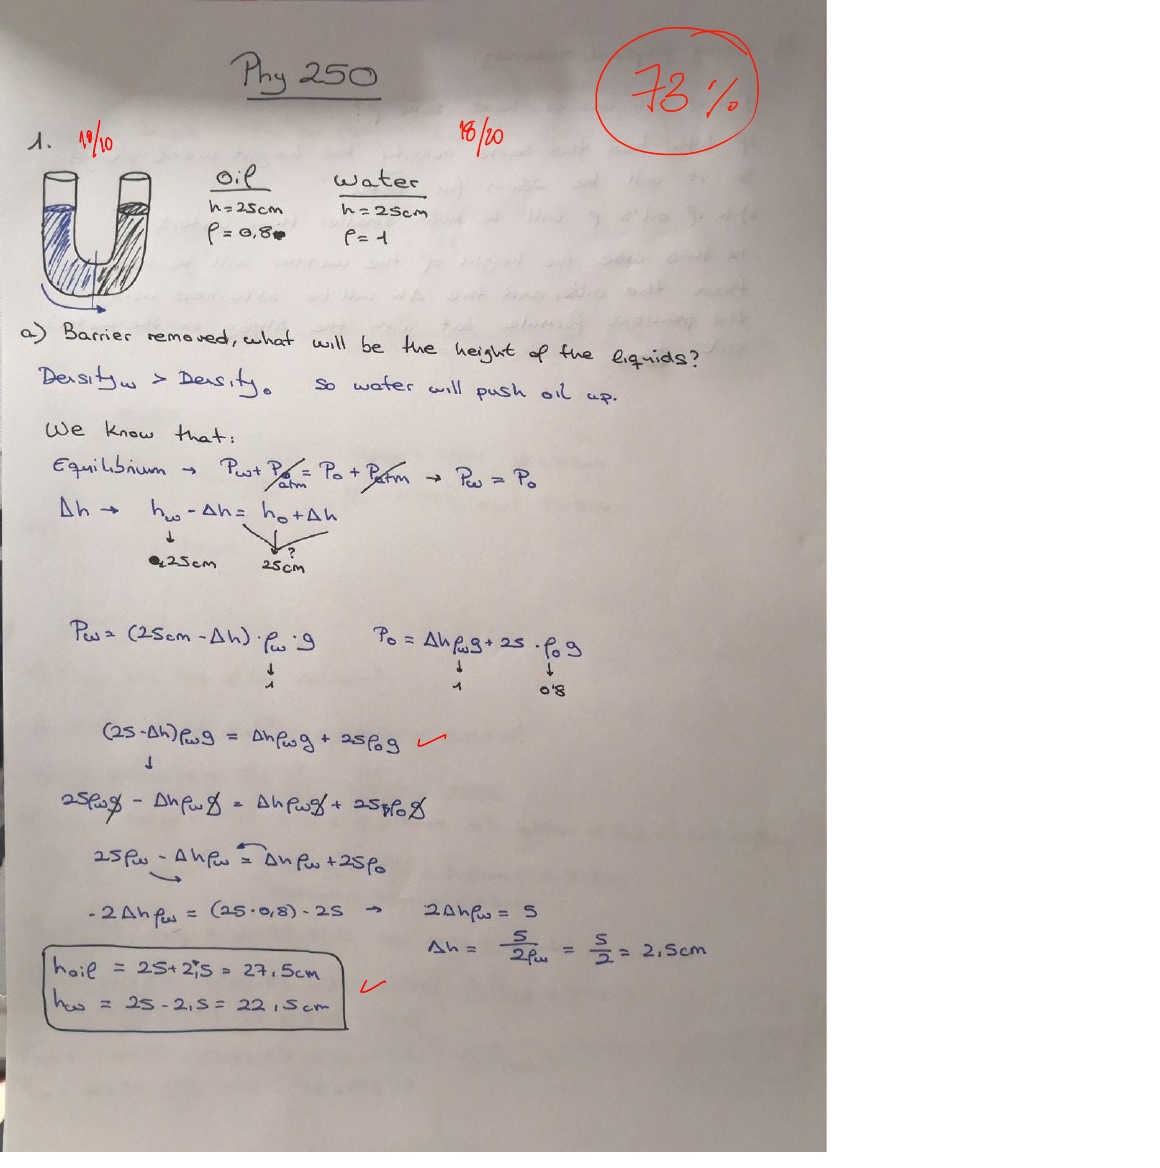 Phy 250
73%
1. 10/10
18/20
oil water
h=25cm h=25cm
ρ=0,8 ρ=1
a) Barrier removed, what will be the height of the liquids?
Density w > Density o so water will push oil up.
We know that:
Equilibrium → Pw + Patm = Po + Patm → Pw = Po
Δh → hw - Δh = ho + Δh
↓ ↓ ?
25cm 25cm
Pw = (25cm - Δh) · ρw · g Po = Δhρwg + 25 · ρo g
↓ ↓ ↓
1 1 0'8
(25-Δh)ρwg = Δhρwg + 25ρog ✓
↓
25ρwg - Δhρwg = Δhρwg + 25ρog
25ρw - Δhρw = Δhρw + 25ρo
-2Δhρw = (25·0,8) - 25 → 2Δhρw = 5
Δh = 5/2ρw = 5/2 = 2,5cm
hoil = 25+2,5 = 27,5cm
hw = 25-2,5 = 22,5cm ✓